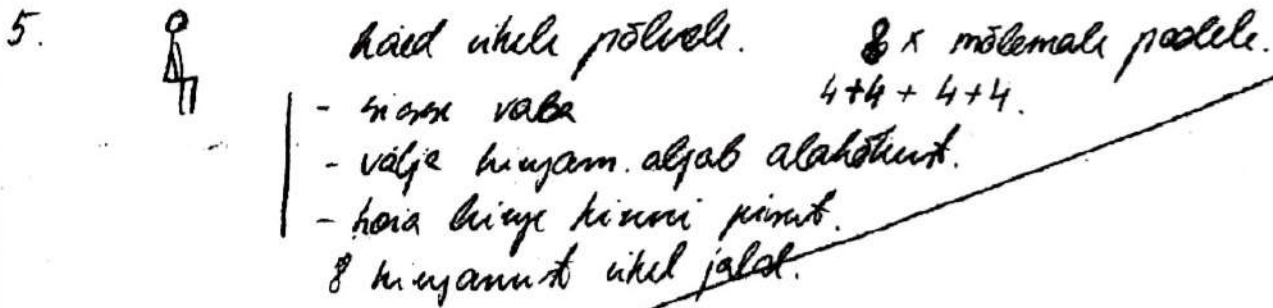 5. käed ühele põlvele. 8 x mõlemale poolele.
4+4 + 4+4.
- sisse vaba
- välja hingam. algab alakõhust.
- hoia hinge kinni pisut.
8 hingamist ühel jalal.